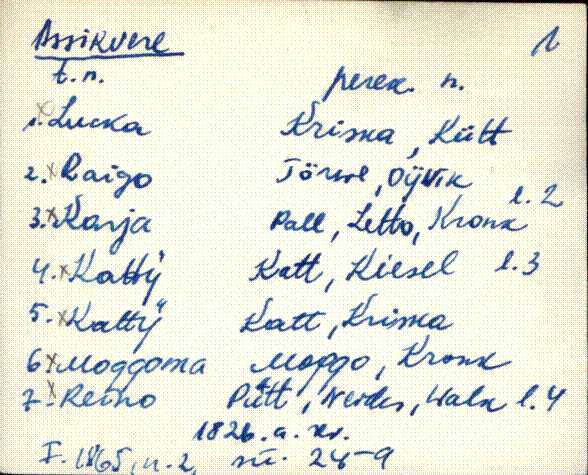 Assikvere 1
t. n. perek. n.
1. x Lucka Kriska, Kütt
2. x Raigo Törwe, Oÿwik l. 2
3. x Karja Pall, Letto, Kronk
4. x Kattÿ Katt, Kiesel l. 3
5. x Kattÿ Katt, Kriska
6 x Moggoma Moggo, Kronk
7. x Reino Pütt, Werder, Walk l. 4
1826. a. kr.
F. 1865, n. 2, sü. 24-9